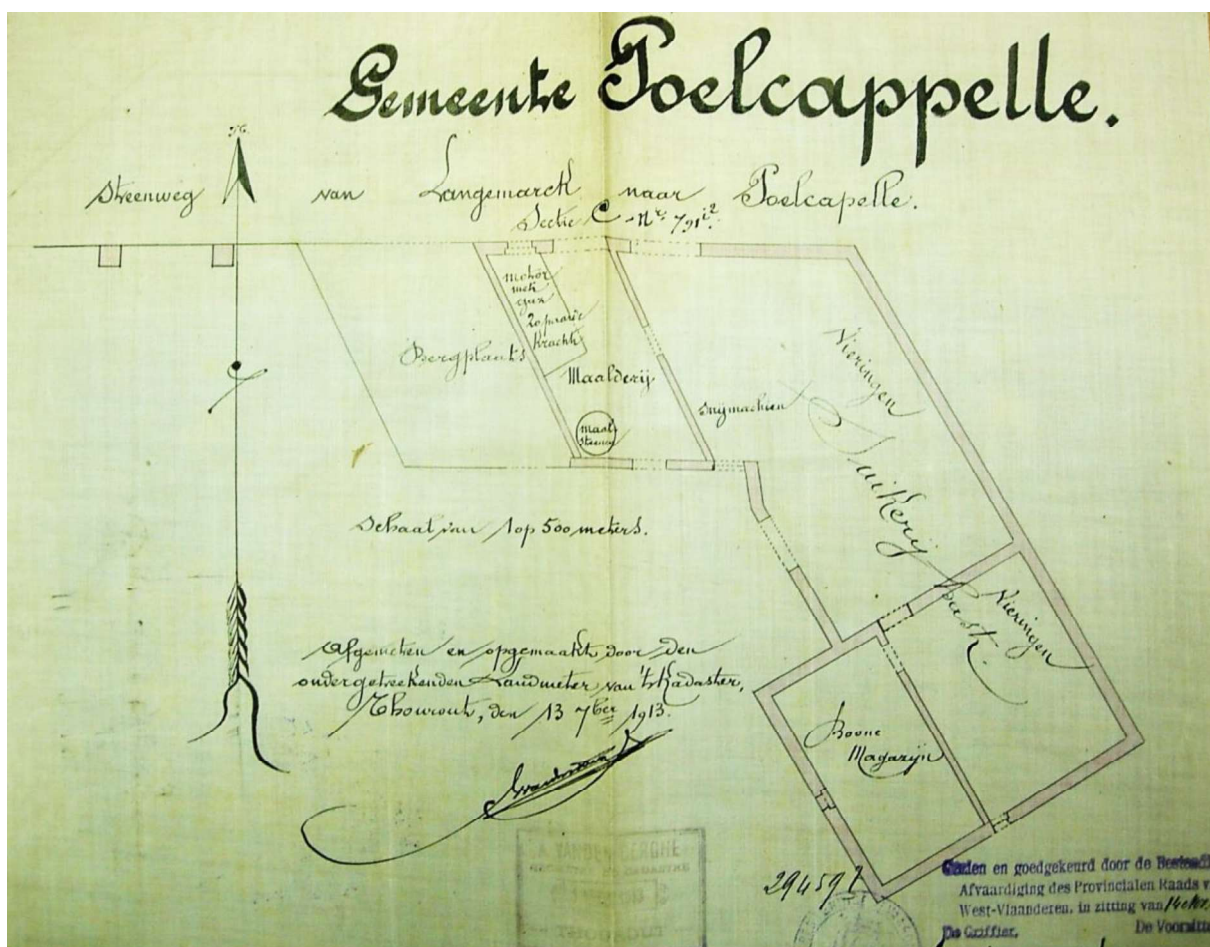 Gemeente Poelcappelle.
N.
Steenweg van Langemarck naar Poelcapelle.
Sectie C - Nr 791 i2.
motor
met
gaz
20 paarde
kracht
Bergplaats
Maalderij
maal
steenen
Snijmachien
Vieringen
Suikerij Aast.
Vieringen
Schaal van 1 op 500 meters.
Afgemeten en opgemaakt door den
ondergeteekenden Landmeter van 't Kadaster,
Thourout, den 13 7ber 1913.
Boone
Magazijn
A. VANDEN BERGHE
294597
Gezien en goedgekeurd door de Bestend
Afvaardiging des Provincialen Raads v
West-Vlaanderen, in zitting van
De Griffier, De Voorzitte